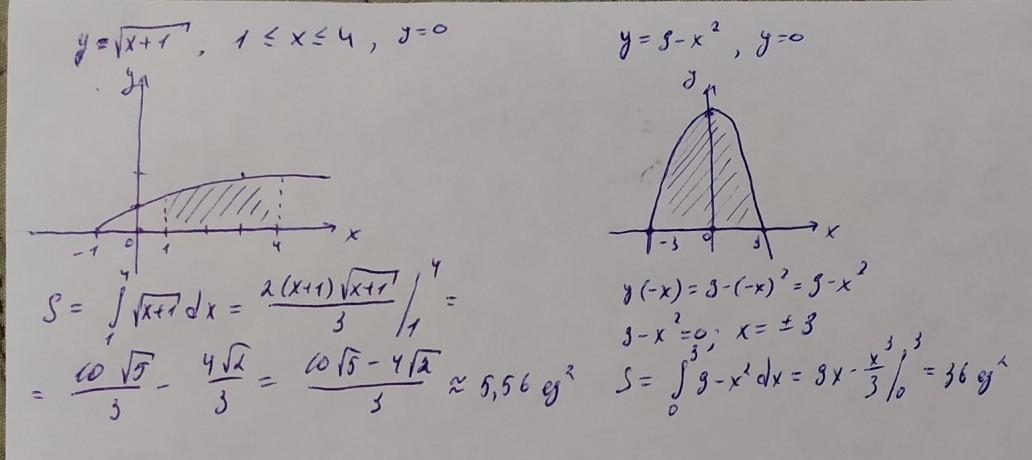 y = √(x+1) , 1 ≤ x ≤ 4 , y = 0
y
-1 0 1 4 x
S = ∫₁⁴ √(x+1) dx = 2(x+1)√(x+1) / 3 |₁⁴ =
= 10√5 / 3 - 4√2 / 3 = (10√5 - 4√2) / 3 ≈ 5,56 ед²
y = 9 - x² , y = 0
y
-3 0 3 x
y(-x) = 9 - (-x)² = 9 - x²
9 - x² = 0; x = ± 3
S = ∫₀³ 9 - x² dx = 9x - x³/3 |₀³ = 36 ед²